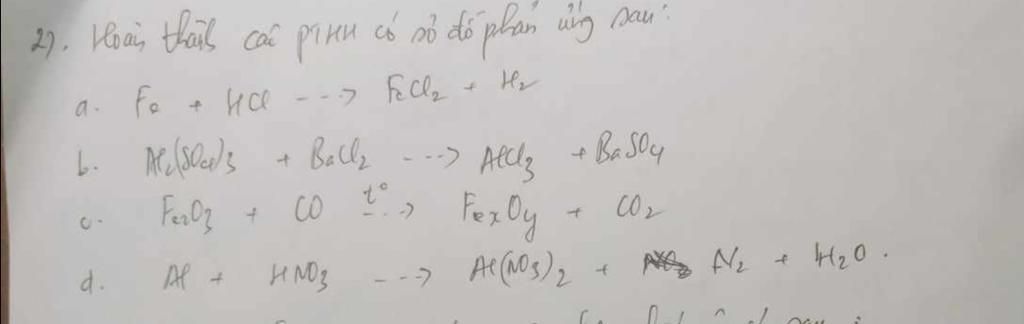 2). Hoàn thành các PTHH có sơ đồ phản ứng sau:
a. Fe + HCl ---> FeCl2 + H2
b. Al2(SO4)3 + BaCl2 ---> AlCl3 + BaSO4
c. Fe2O3 + CO t° ---> FexOy + CO2
d. Al + HNO3 ---> Al(NO3)2 + N2 + H2O.